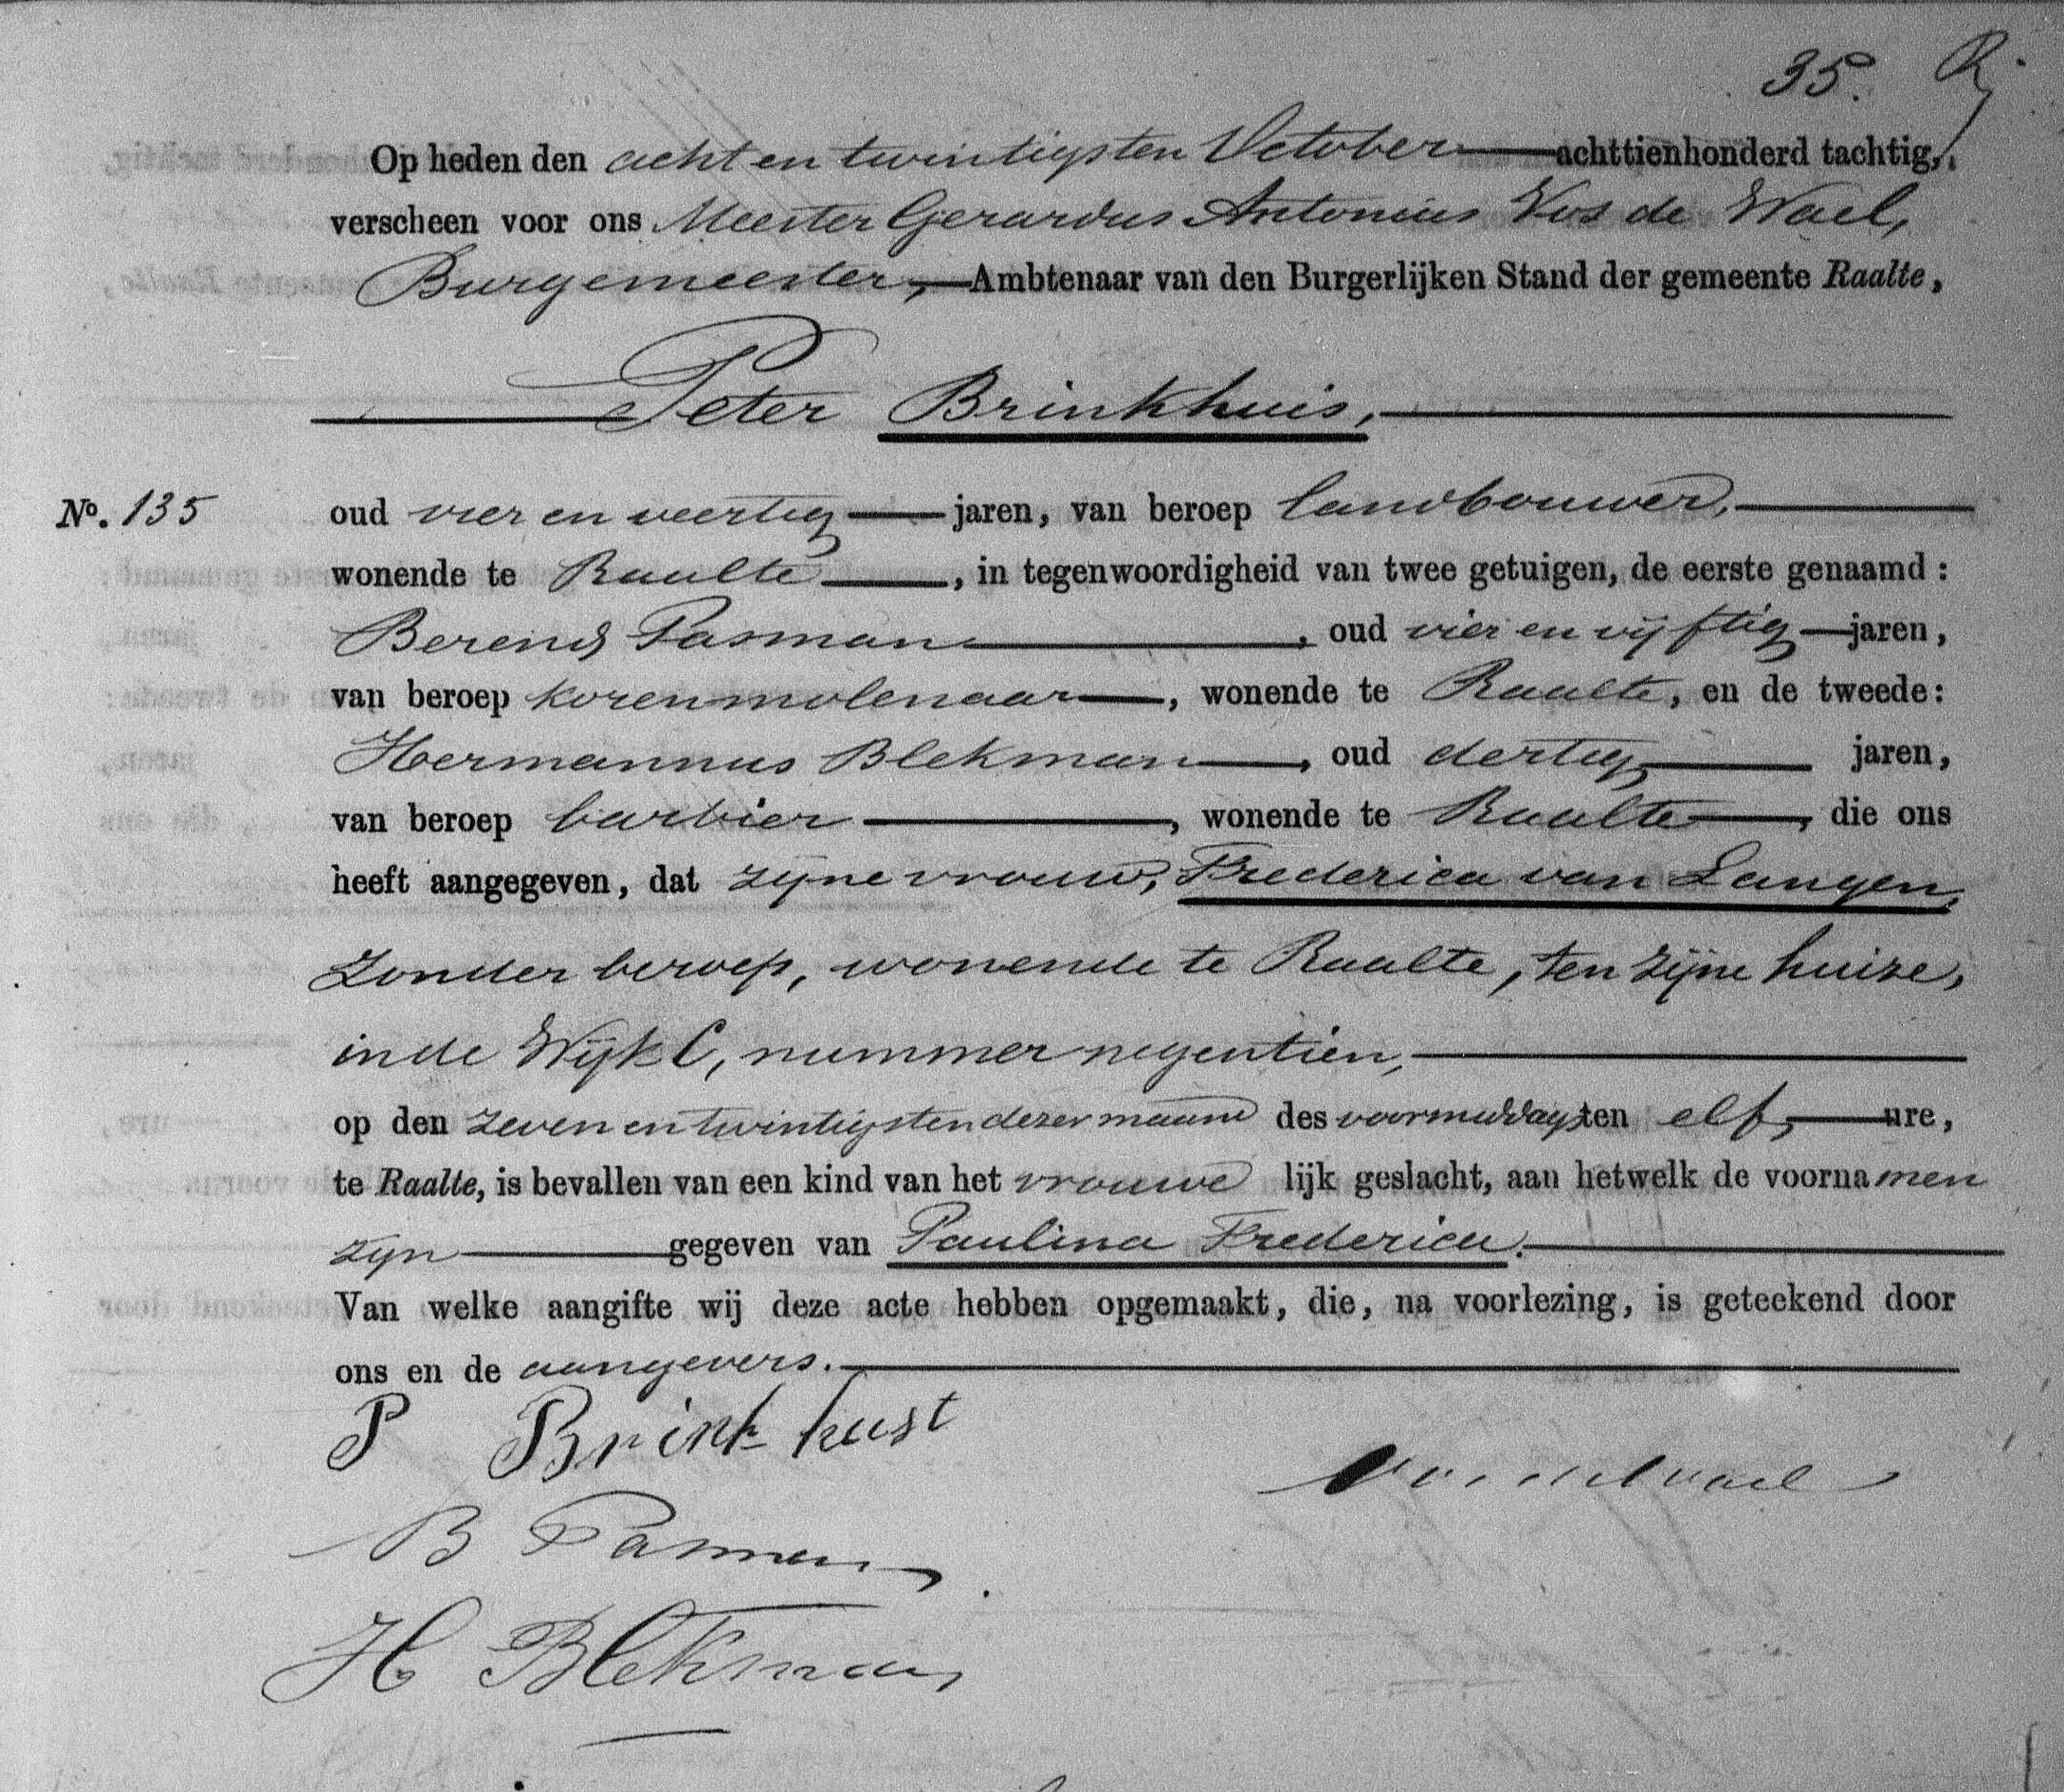 35.
Op heden den acht en twintigsten October achttienhonderd tachtig,
verscheen voor ons Meester Gerardus Antonius Vos de Wael,
Burgemeester, Ambtenaar van den Burgerlijken Stand der gemeente Raalte,
Peter Brinkhuis,
No. 135 oud vier en veertig jaren, van beroep landbouwer,
wonende te Raalte, in tegenwoordigheid van twee getuigen, de eerste genaamd:
Berend Pasman, oud vier en vijftig jaren,
van beroep korenmolenaar, wonende te Raalte, en de tweede:
Hermannus Blekman, oud dertig jaren,
van beroep barbier, wonende te Raalte, die ons
heeft aangegeven, dat zijne vrouw, Frederica van Langen,
zonder beroep, wonende te Raalte, ten zijne huize,
in de Wijk C, nummer negentien,
op den zeven en twintigsten dezer maand des voormiddags ten elf, ure,
te Raalte, is bevallen van een kind van het vrouwe lijk geslacht, aan hetwelk de voornamen
zijn gegeven van Paulina Frederica.
Van welke aangifte wij deze acte hebben opgemaakt, die, na voorlezing, is geteekend door
ons en de aangevers.
P Brinkhust
Vos de Wael
B Pasman
H Blekman